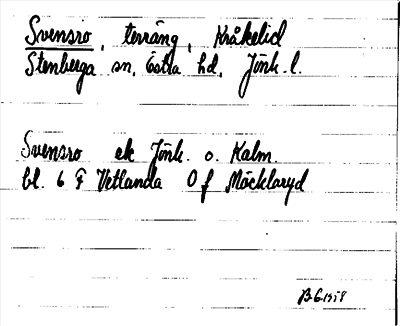 Svensro, terräng, Kråkelid
Stenberga sn, Östra hd, Jönk. l.
Svensro ek Jönk. o. Kalm.
bl. 6 F Vetlanda 0 f Möcklaryd
BG 1958